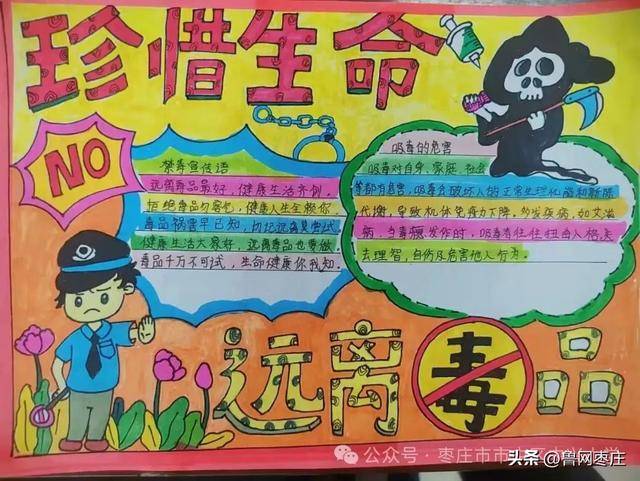 珍惜生命
NO
禁毒宣传语
远离毒品最好,健康生活齐创。
拒绝毒品勿害它,健康人生全赖你,
毒品祸害早已知,切记远离莫尝试
健康生活大家好,远离毒品也要做
毒品千万不可试,生命健康你我知。
吸毒的危害
吸毒对自身、家庭、社会
等都有危害,吸毒会破坏人的正常生理机能和新陈
代谢,导致机体免疫力下降。多发疾病,如艾滋
病,当毒瘾发作时,吸毒者往往扭曲人格,失
去理智,自伤及危害他人行为。
远离毒品
公众号·枣庄市市
头条 @鲁网枣庄